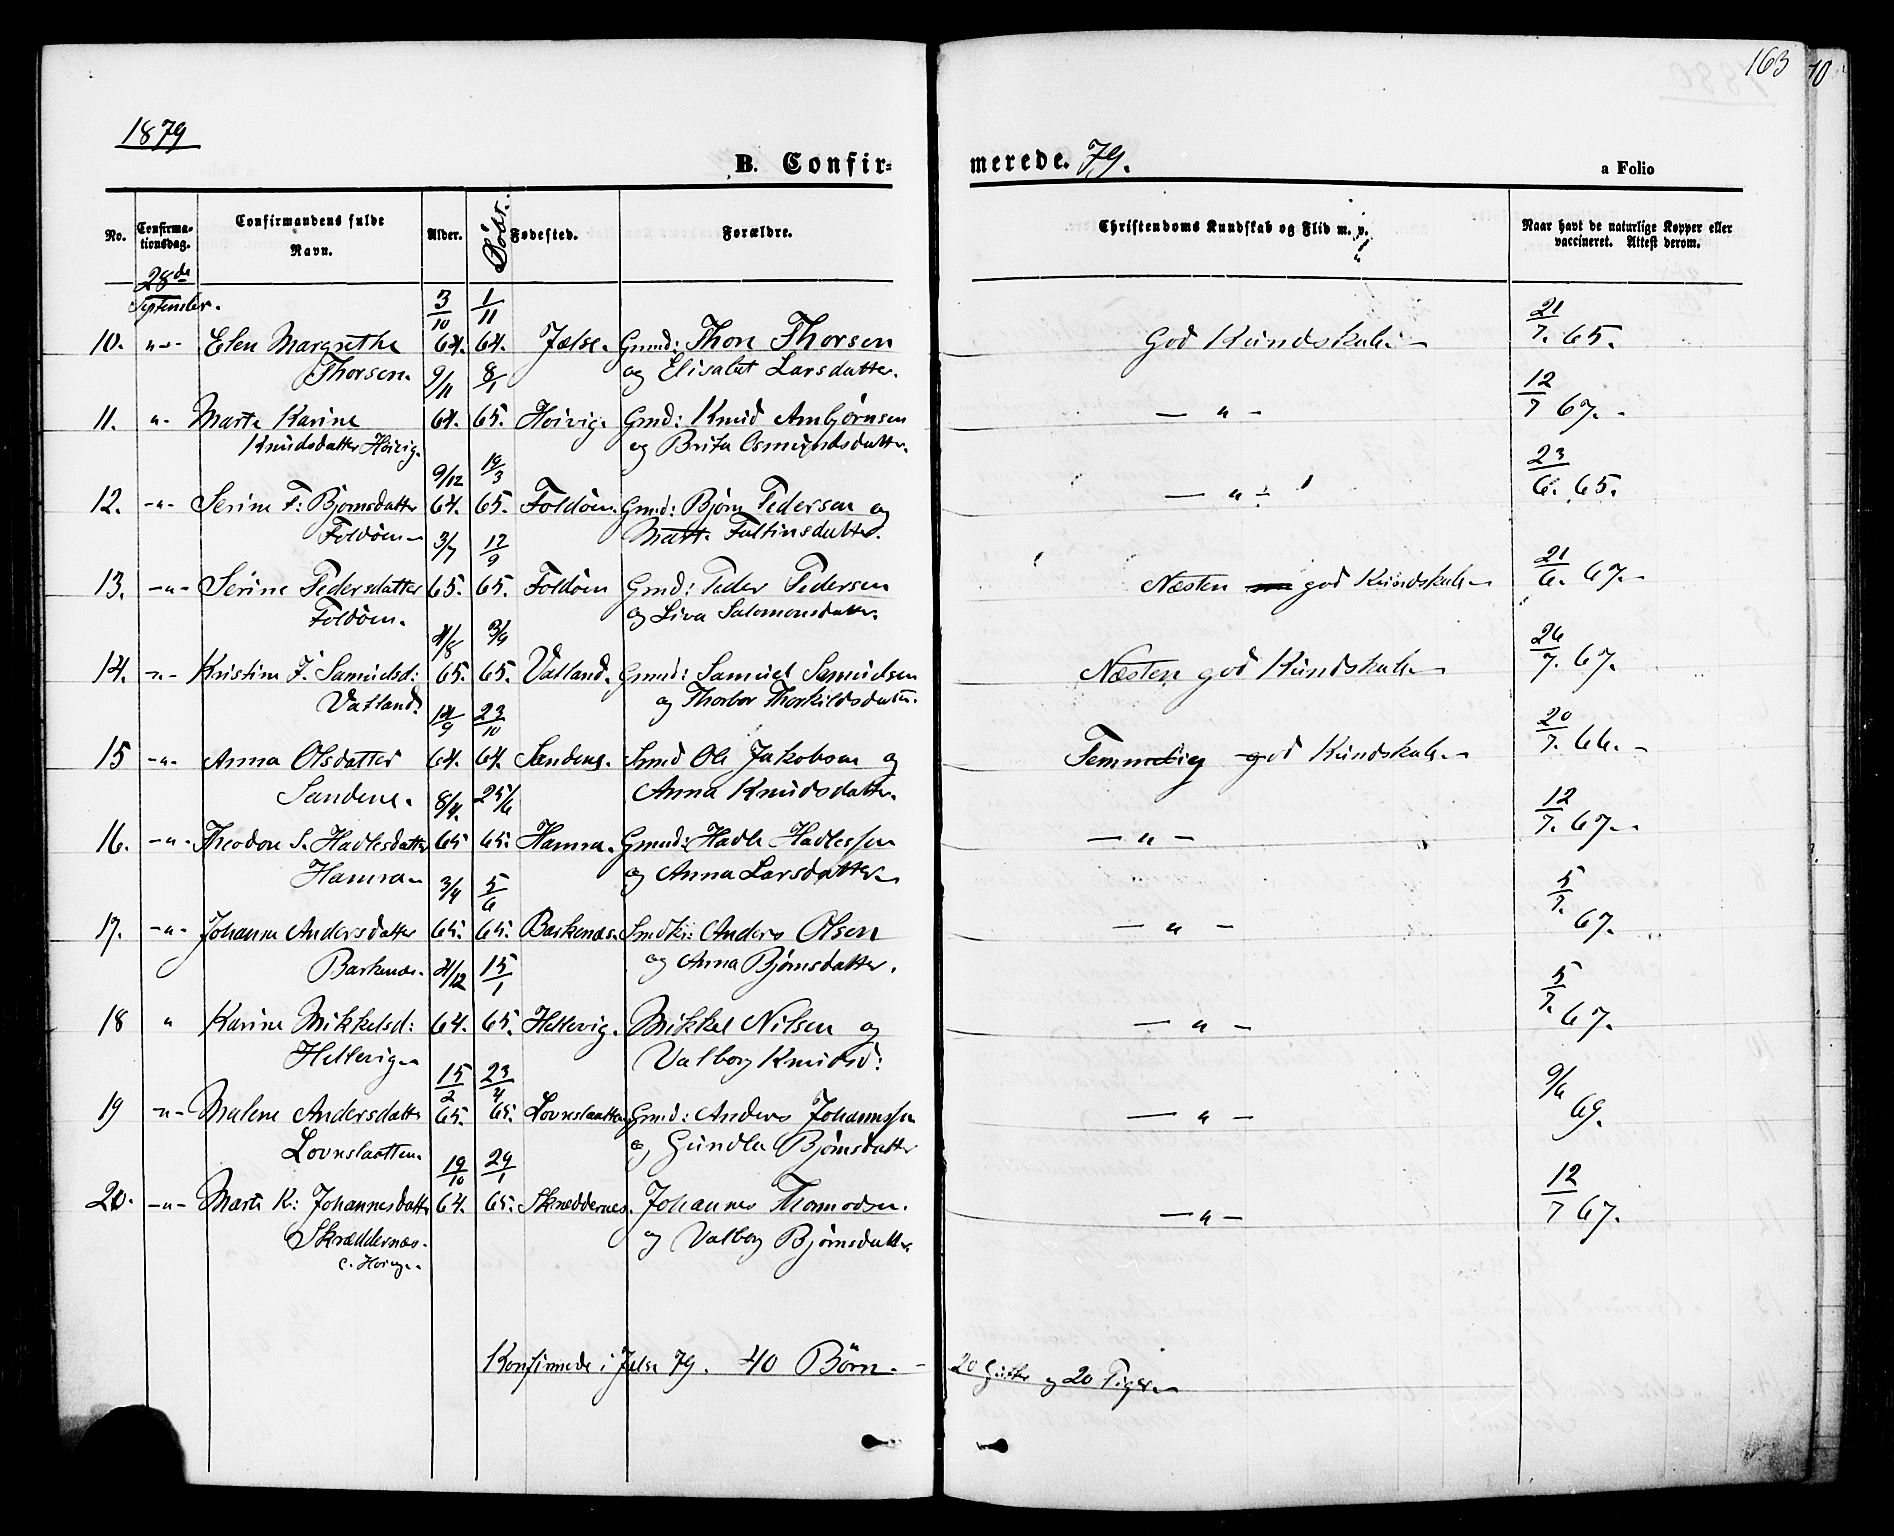 163
10
1879
B. Confir=
merede. 79.
a Folio
No.
Confirma-
tionsdag.
Confirmandens fulde
Navn.
Alder.
Fødested.
Forældre.
Christendoms Kundskab og Flid m. v.
Naar havt de naturlige Kopper eller
vaccineret. Attest derom.
28de
September.
3/10 1/11 21/7. 65.
10. -"- Elen Margrethe 64. 64. Jælse. Gmd: Thore Thorsen God Kundskab. -
Thorsen. og Elisabet Larsdatter.
9/11 8/1 12/7 67. -
11. "- Marta Karine 64. 65. Hoivig. Gmd: Knud Ambjørnsen — " -
Knudsdatter Hoivig. og Brita Osmundsdatter.
9/12 19/3 23/6. 65.
12. -"- Serine F: Bjørnsdatter 64. 65. Foldøen. Gmd: Bjørn Pedersen og — " -
Foldøen- Marta Faltinsdatter.
3/7 12/9 21/6. 67. -
13. -"- Serine Pedersdatter 65. 65. Foldøen Gmd: Peder Pedersen Næsten god Kundskab. -
Foldøen. og Liva Salomonsdatter.
4/8 3/9 26/7. 67.
14. -"- Kristine J. Samuelsd: 65. 65. Vatland. Gmd: Samuel Samuelsen Næsten god Kundskab -
Vatland. og Thorbor Thorkildsdatter.
14/9 23/10 20/7. 66. -
15 -"- Anna Olsdatter 64. 64. Sandene. Smd Ole Jakobsen og Temmelig god Kundskab. -
Sandene. Anna Knudsdatter.
8/4. 25/6 12/7. 67. -
16. -"- Theodore S. Hadlesdatter 65 65. Hamra. Gmd: Hadle Hadlessen — " -
Hamra - og Anna Larsdatter -
3/4 5/6 5/7. 67.
17. -"- Johanne Andersdatter 65. 65. Barkenæs. Smdkr: Anders Olsen — " -
Barkenæs. og Anna Bjørnsdatter.
4/12 15/1 5/7. 67.
18 " Karine Mikkelsd: 64. 65. Hettevig. Mikkel Nilsen og — " -
Hettevig - Valborg Knudsd:
15/2 23/4 9/6 69.
19 -"- Malene Andersdatter 65. 65. Lovnslaatten Gmd: Anders Johannessen — " -
Lovnslaatten. og Gundla Bjørnsdatter
19/10 29/1 12/7 67.
20. -"- Marta K: Johannesdatter 64. 65. Skræddernes. Johannes Thormodsen. — " -
Skræddernæs. og Valborg Bjørnsdatter
Konfirmede i Jelse 79. 40 Børn. - 20 Gutter og 20 Piger. -